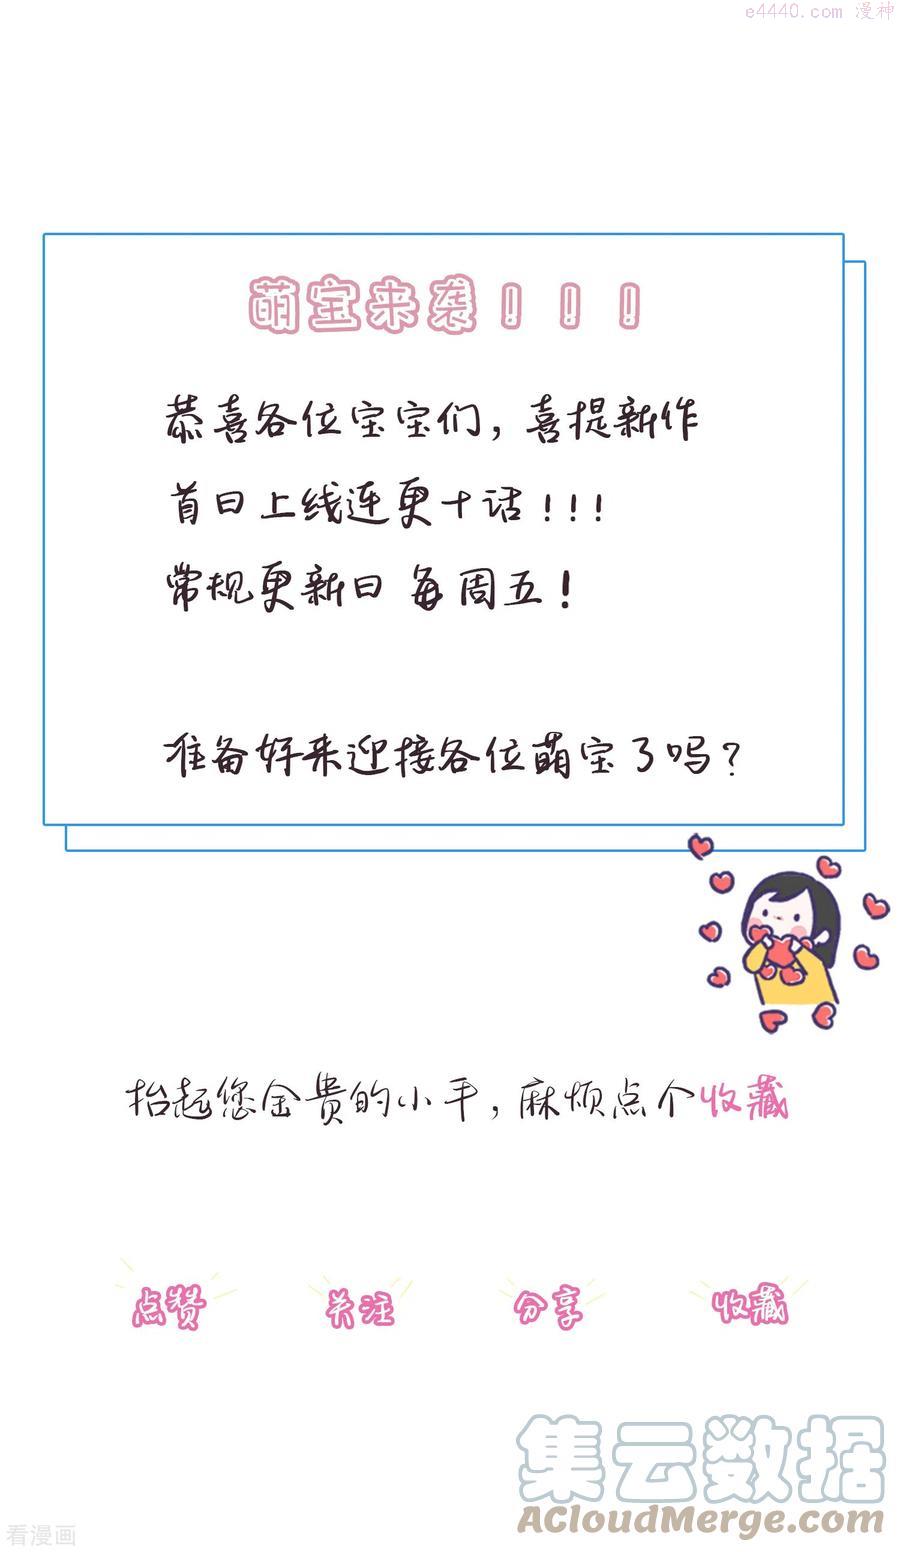 e4440.com 漫神
萌宝来袭！！！
恭喜各位宝宝们，喜提新作
首日上线连更十话！！！
常规更新日 每周五！
准备好来迎接各位萌宝了吗？
抬起您金贵的小手，麻烦点个收藏
点赞 关注 分享 收藏
集云数据
ACloudMerge.com
看漫画